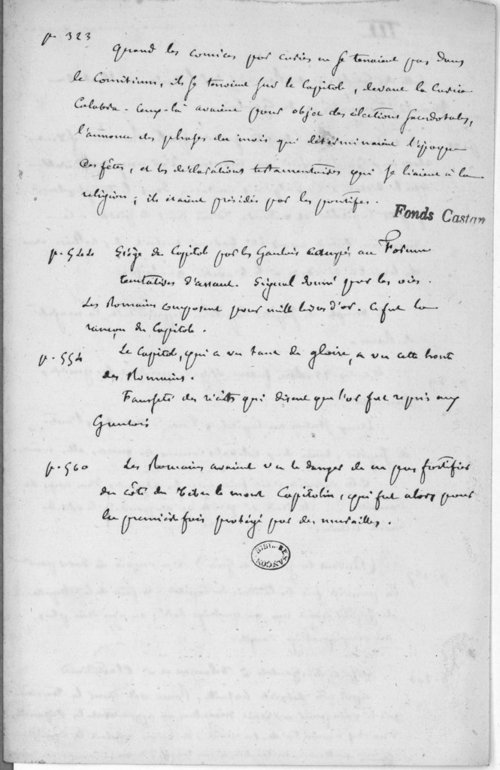 p. 323
Quand les comices par curies ne se tenaient pas dans
le Comitium, ils se tenaient sur le Capitole, devant la Curia
Calabra. Ceux-là avaient pour objet des élections sacerdotales,
l'annonce des phases du mois qui déterminaient l'époque
des fêtes, et les déclarations testamentaires qui se liaient à la
religion ; ils étaient présidés par les pontifes.
Fonds Castan
p. 544 Siége du Capitole par les Gaulois campés au Forum
tentatives d'assaut. Signal donné par les oies.
Les Romains composent pour mille livres d'or. Ce fut la
rançon du Capitole.
p. 554 Le Capitole, qui a vu tant de gloire, a vu cette honte
des Romains.
Fausseté des récits qui disent que l'or fut repris aux
Gaulois
p. 560 Les Romains avaient vu le danger de ne pas fortifier
du côté du Tibre le mont Capitolin, qui fut alors pour
la première fois protégé par des murailles.
BIBL. BESANÇON